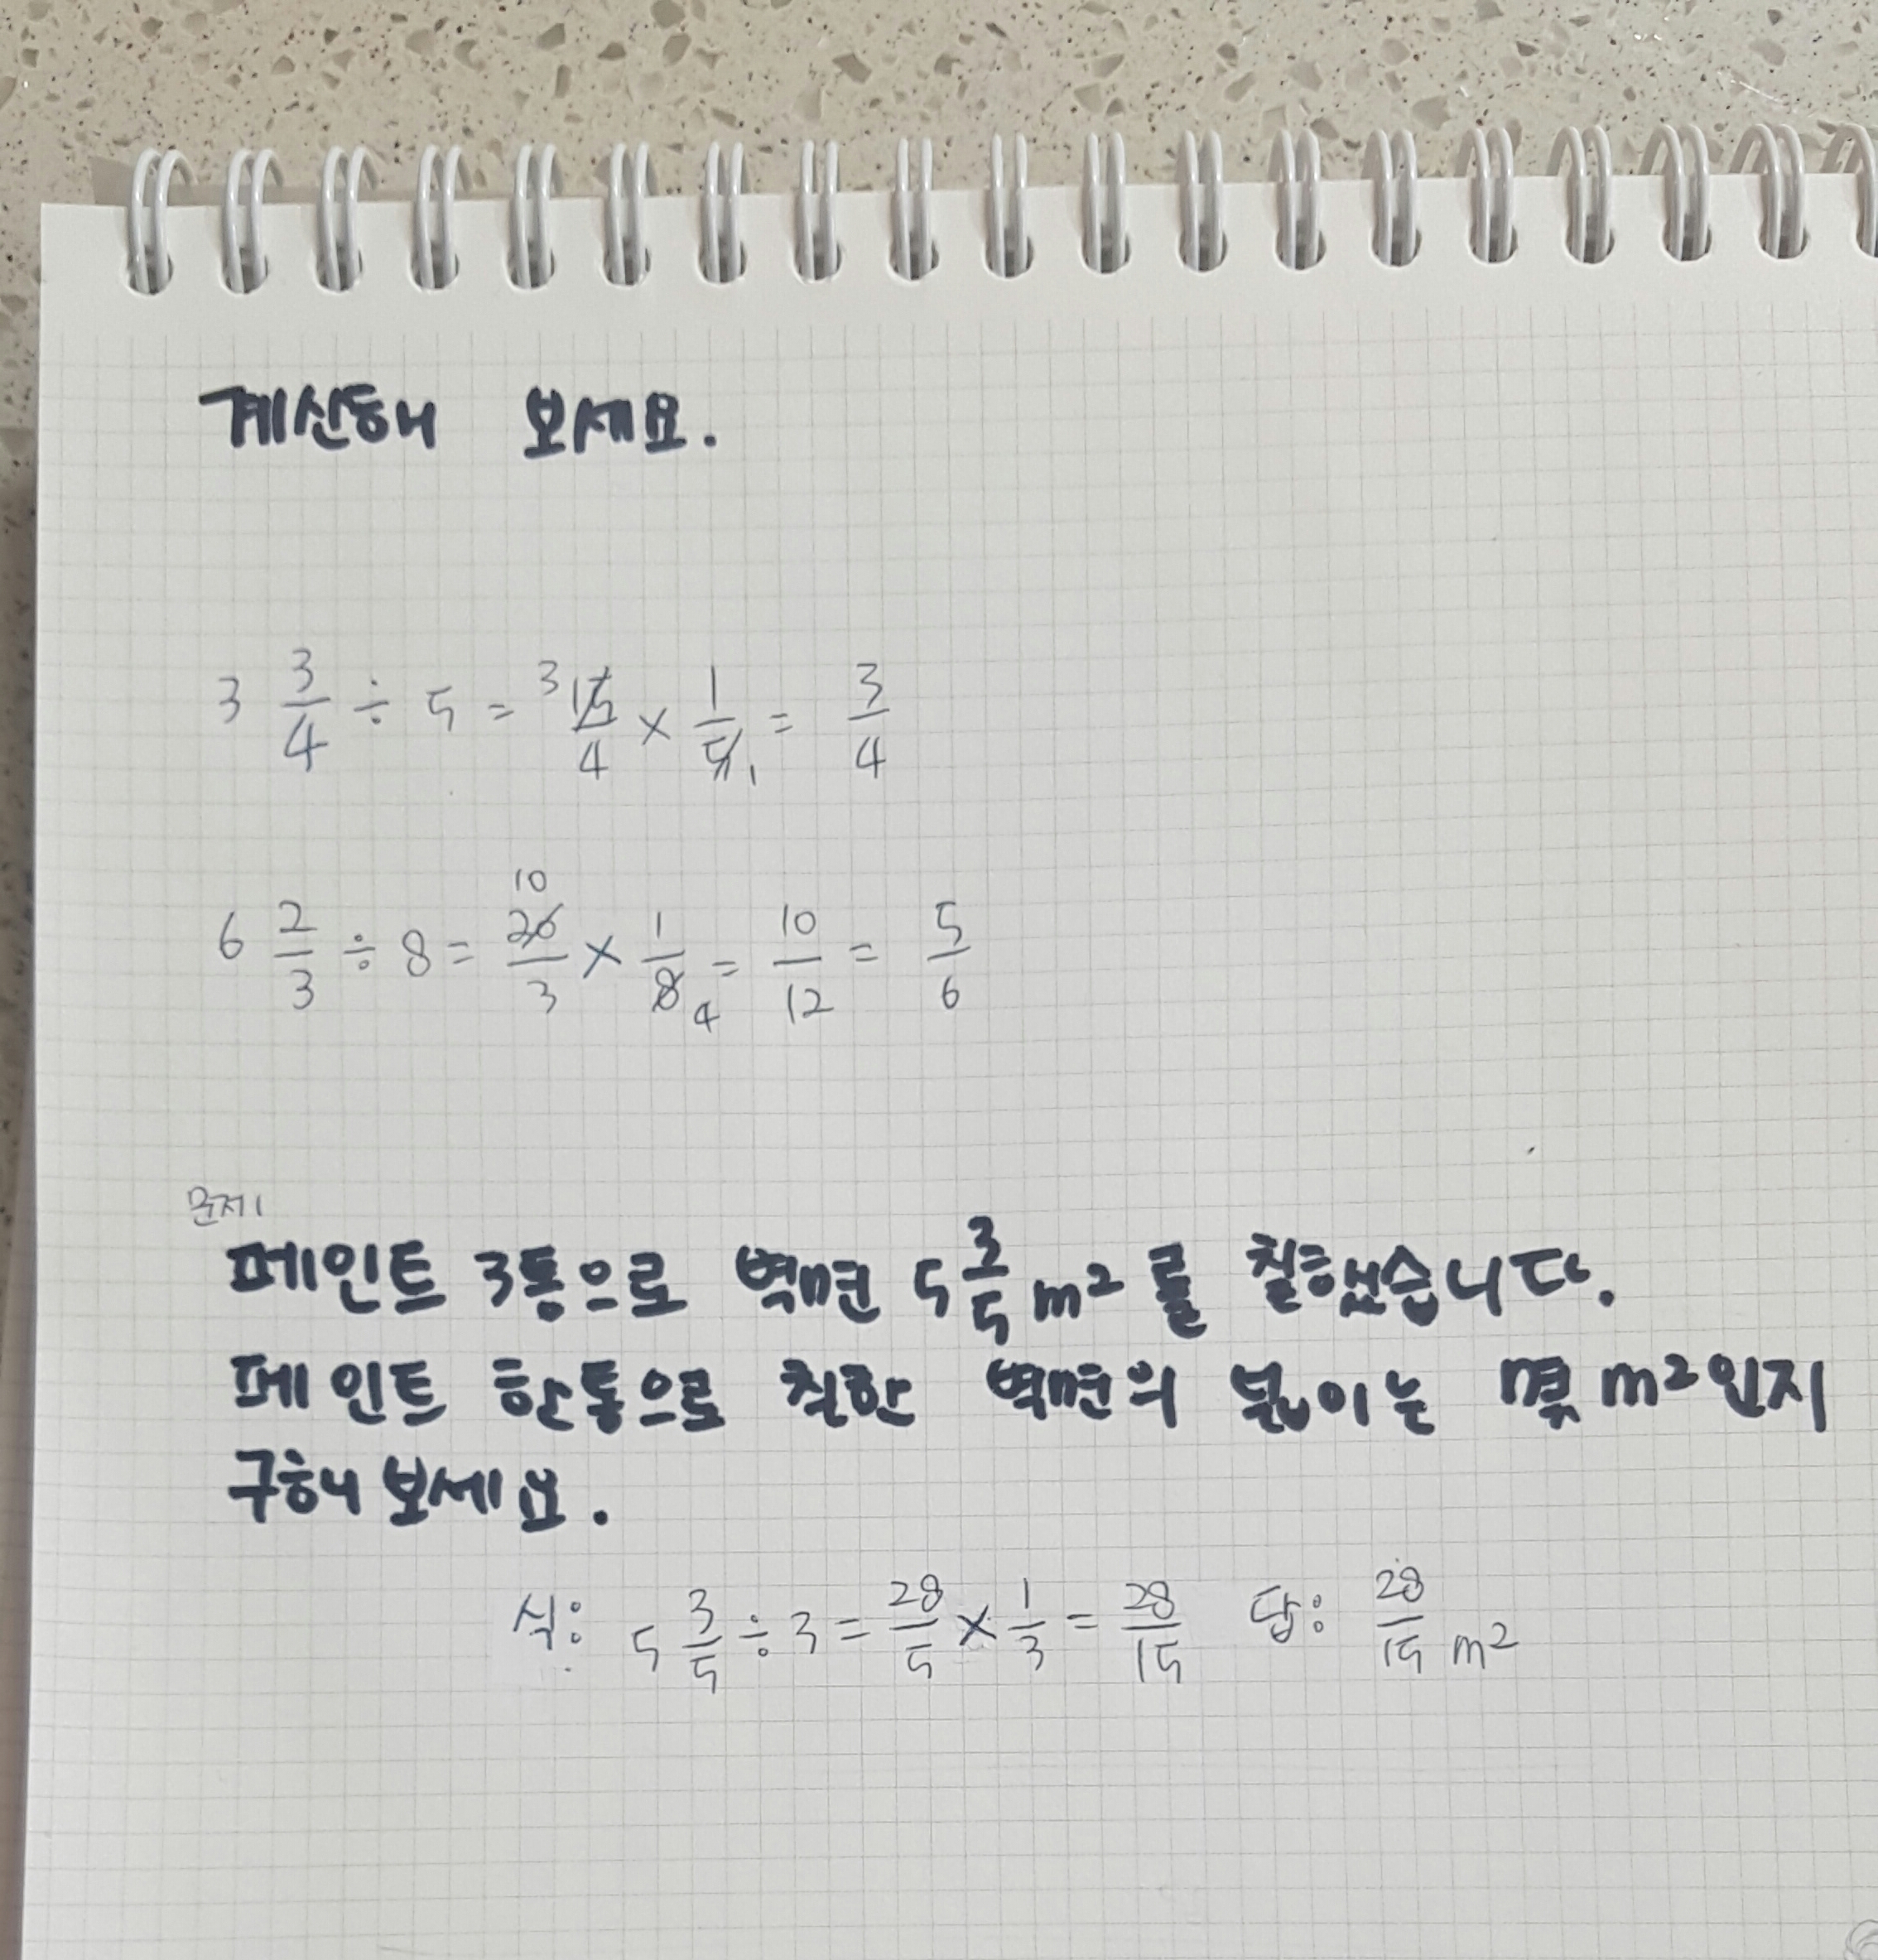 계산해 보세요.
3 3/4 ÷ 5 = 3 15/4 × 1/5 1 = 3/4
10
6 2/3 ÷ 8 = 20/3 × 1/8 4 = 10/12 = 5/6
문제1
페인트 3통으로 벽면 5 3/5 m² 를 칠했습니다.
페인트 한통으로 칠한 벽면의 넓이는 몇 m² 인지
구해 보세요.
식: 5 3/5 ÷ 3 = 28/5 × 1/3 = 28/15 답: 28/15 m²